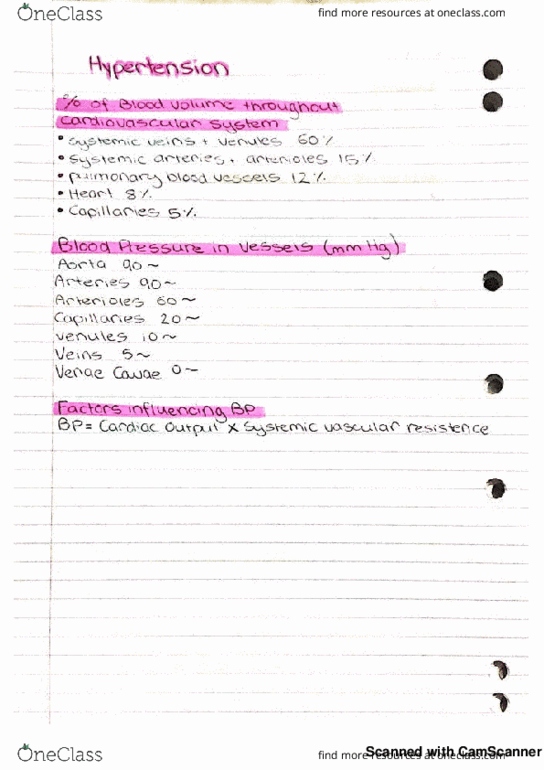 OneClass
find more resources at oneclass.com
Hypertension
% of Blood volume throughout
cardiovascular system
• systemic veins + venules 60%
• systemic arteries + arterioles 15%
• pulmonary blood vessels 12%
• Heart 8%
• Capillaries 5%
Blood Pressure in vessels (mmHg)
Aorta 90~
Arteries 90~
Arterioles 60~
Capillaries 20~
venules 10~
Veins 5~
Venae Cavae 0~
Factors influencing BP
BP = Cardiac Output x systemic vascular resistence
OneClass
find more resources at oneclass.com
Scanned with CamScanner